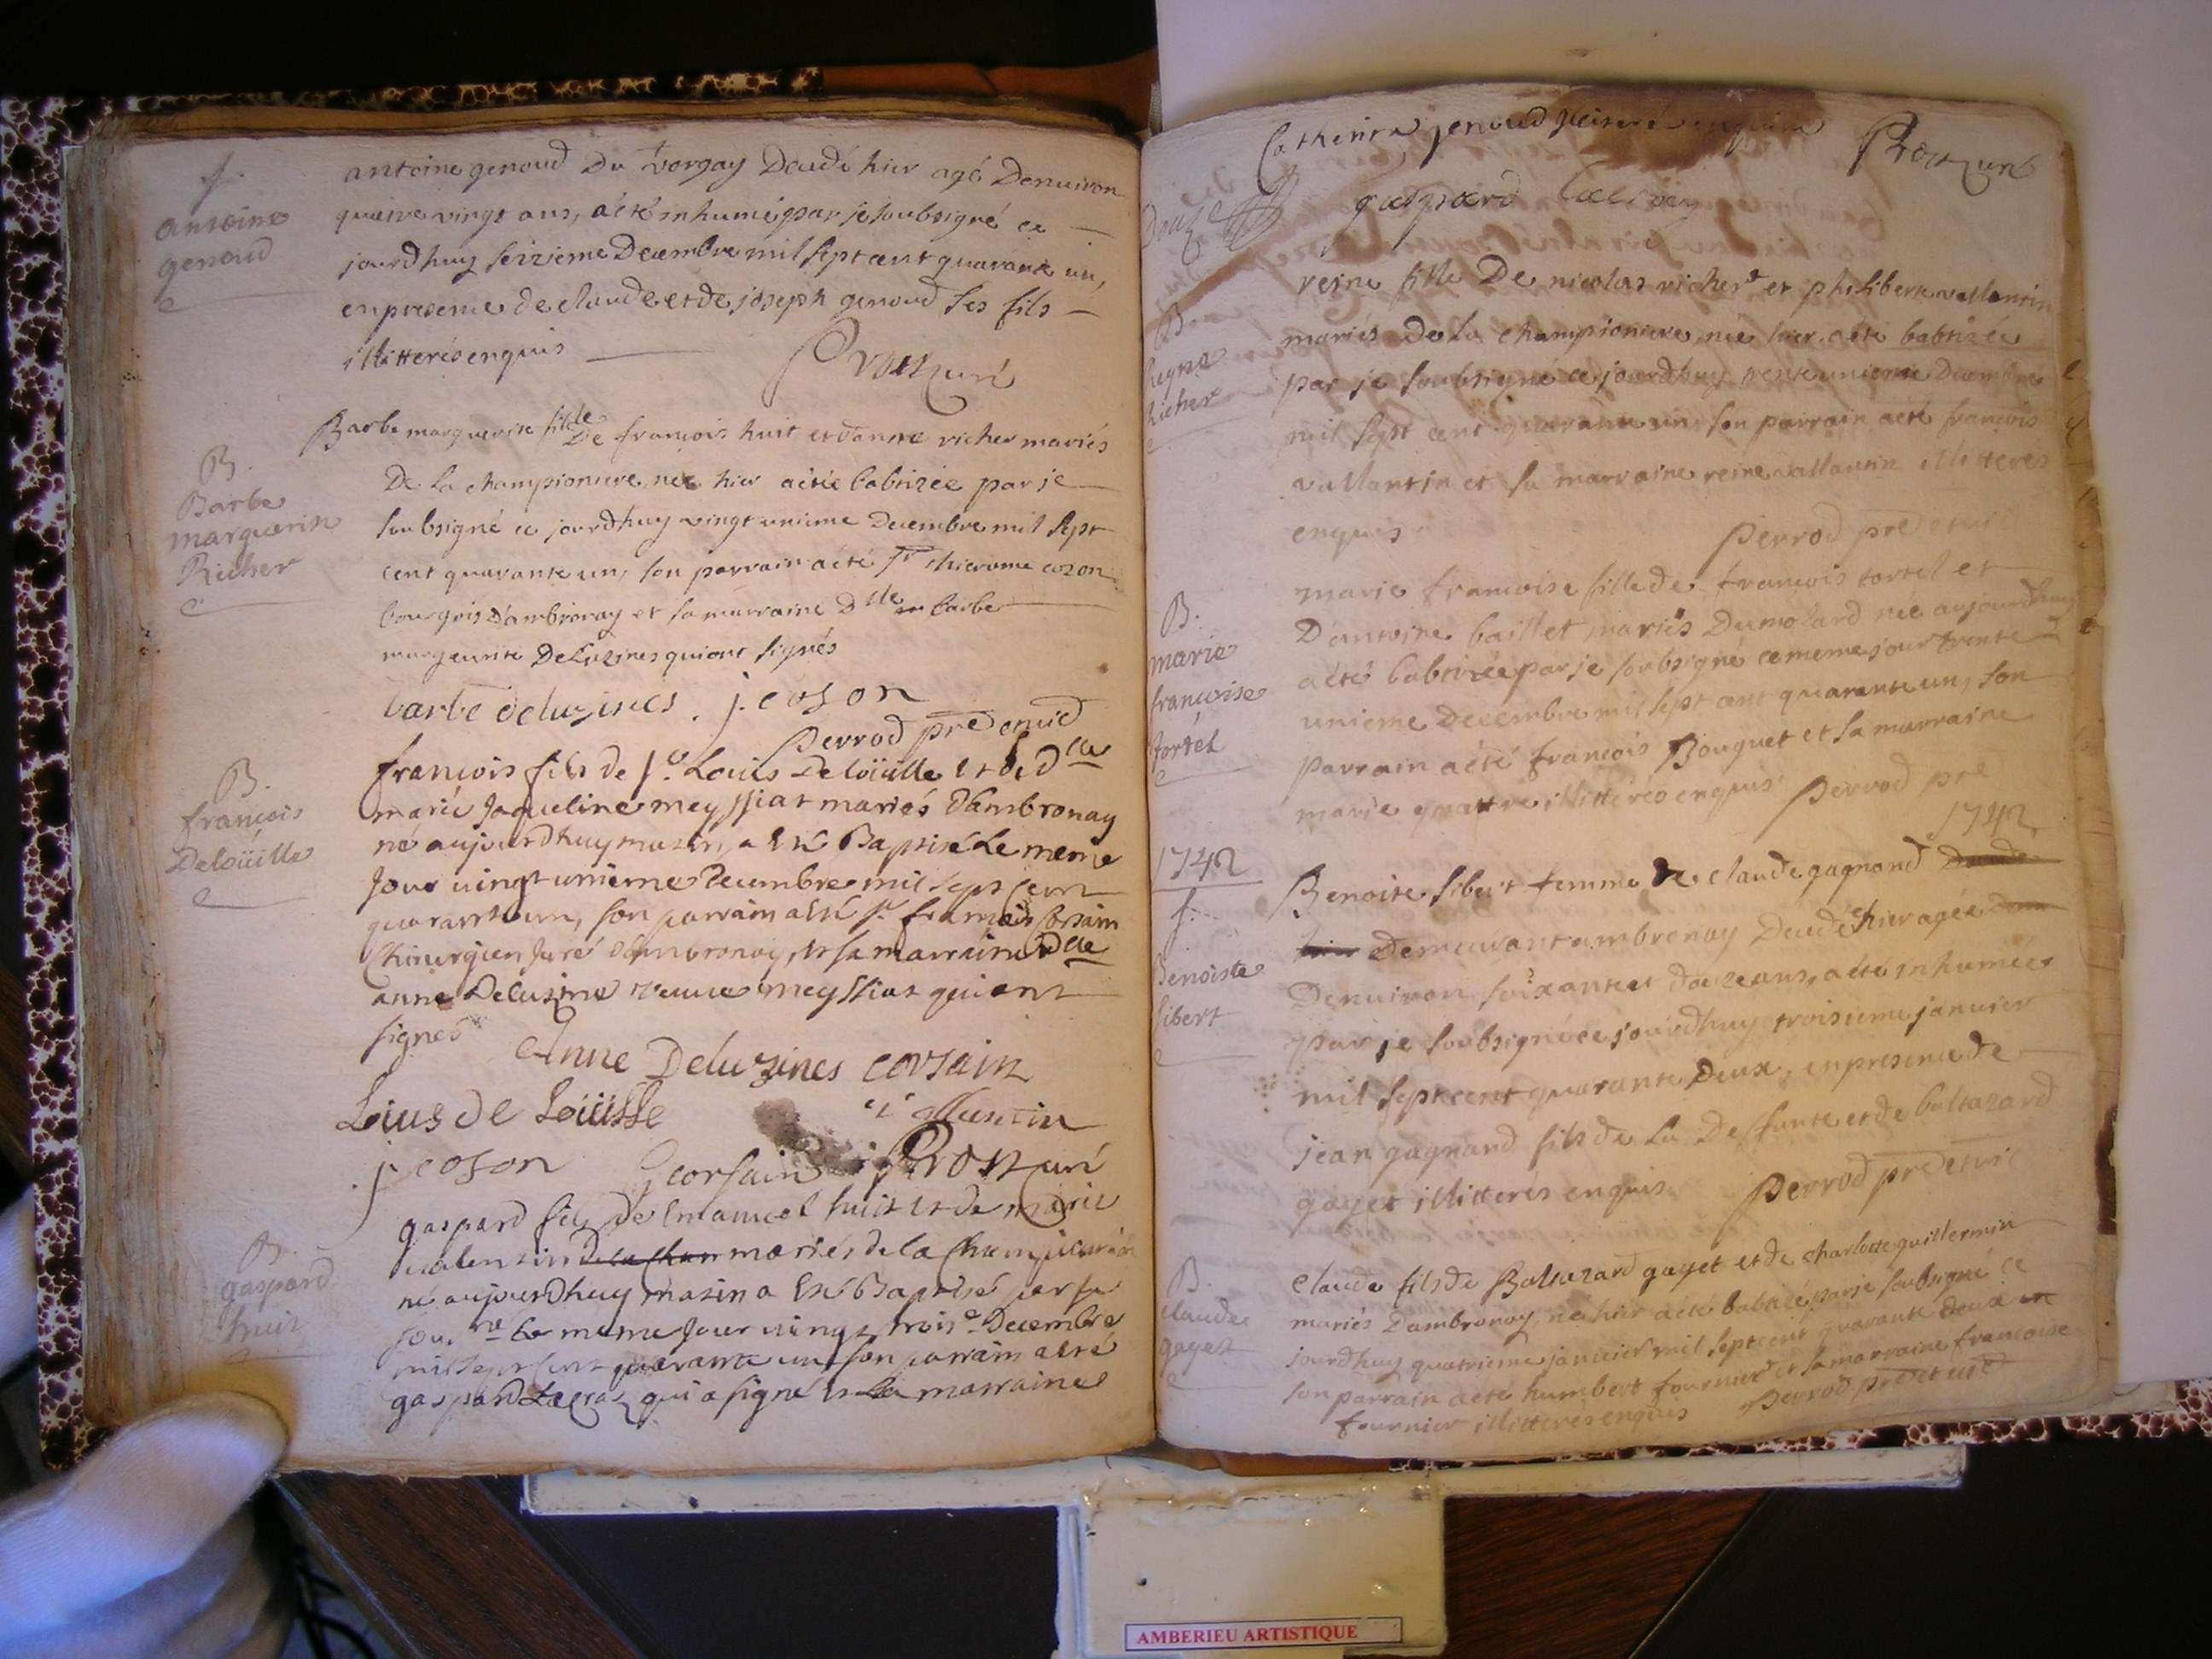 f.
antoine
genoud
antoine genoud Du vorgay Decedé hier agé Denuiron
quatre vingt ans, a été inhumé par je soubsigné ce
jourdhuy seizieme Decembre mil sept cent quarante un,
en presence de claude et de joseph genoud ses fils
illitterés enquis
curé
B.
Barbe
marguerite
Richer
Barbe marguerite fille De francois huit et danne richer mariés
De la championiere née hier a été babtizée par je
soubsigné ce jourdhuy vingt unieme Decembre mil sept
cent quarante un, son parrain a été sr thierome cozon
bourgois D'ambronay et sa marraine Dlle barbe
marguerite Deluzines qui ont signés
barbe deluzines . j. coson
perrod pre et vic
B.
francois
Deloüille
francois fils de sr. Louis Deloüille et de dlle
marie Jaqueline meyssiat mariés d'ambronay
né aujourdhuy matin, a esté Baptisé Le meme
Jour vingt unieme Decembre mil sept cent
quarante un, son parrain a esté sr. francois Corsain
Chirurgien Juré d'ambronay, et sa marraine dlle
anne Deluzine veuve meyssiat qui ont
signés
Anne Deluzines corsain
Loius de Loüille
j coson G corsain curé
B.
gaspard
huit
gaspard fils de Emanuel huit et de marie
valentin de la cham mariés de la Championiere
né aujourdhuy matin a esté Baptisé par je
sou. né Le meme Jour vingt trois e Decembre
mil sept cent quarante un, son parrain a esté
gaspard qui a signé et La marraine
Catherine genoud enquise
curé
gaspard
B.
Reyne
Richer
reine fille De nicolas richerd et philiberte vallantin
mariés De la championiere, née hier a été babtizée
par je soubsigné ce jourdhuy trente unieme Decembre
mil sept cent quarante un, son parrain a été francois
vallantin et sa marraine reine vallantin illitterés
enquis
perrod pre et vic
B.
marie
francoise
tortel
marie francoise fille de francois tortel et
D'antoine baillet mariés Dumolard née aujourdhuy
a été babtizée par je soubsigné ce meme jour trente
unieme Decembre mil sept cent quarante un, son
parrain a été francois Bouquet et sa marraine
marie quattre illitterés enquis perrod pre
1742
1742
f.
Benoiste
sibert
Benoite sibert femme de claude gagnard Decedée
hier Demeurant ambronay Decedé hier agée
Denuiron soixante et douze ans, a été inhumée
par je soubsigné ce jourdhuy troisieme januier
mil sept cent quarante Deux, en presence de
jean gagnard fils de La Deffunte et de baltazard
gayet illitterés enquis perrod pre et vic
B.
claude
gayet
claude fils de Baltazard gayet et de charlotte guillermin
mariés Dambronay, né hier a été babtizé par je soubsigné ce
jourdhuy quatrieme januier mil sept cent quarante deux
son parrain a été humbert fournier et sa marraine francoise
fournier illitterés enquis perrod pre et vic
AMBERIEU ARTISTIQUE